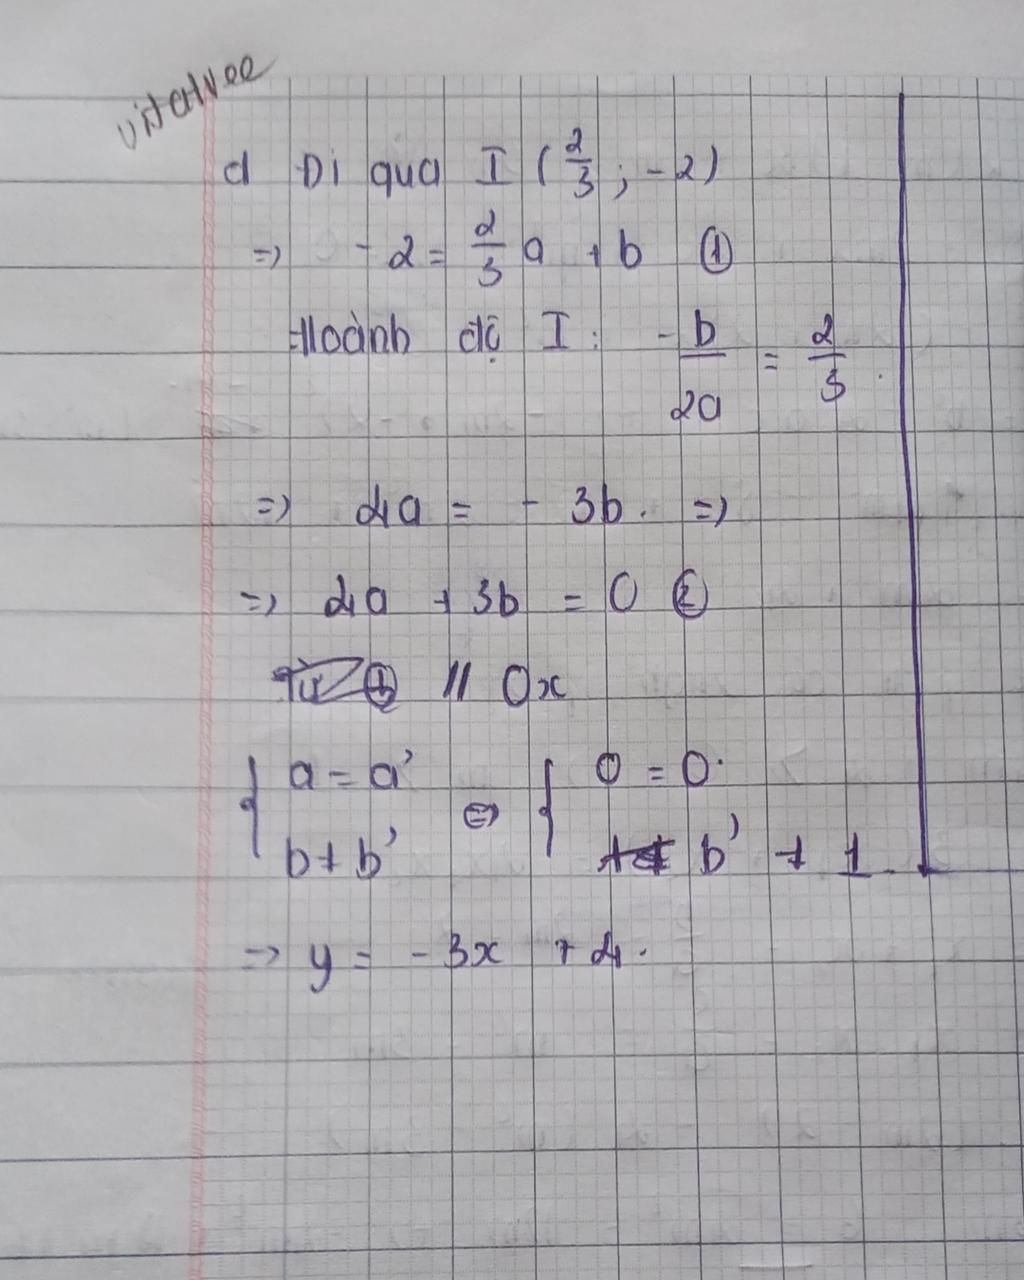 d Đi qua I (2/3 ; -2)
=> - 2 = 2/3 a + b ①
Hoành độ I : - b/2a = 2/3 .
=> 4a = - 3b. =>
=> 4a + 3b = 0 ②
// Ox
{ a = a' b ≠ b' <=> { 0 = 0. b' ≠ 1
=> y = - 3x + 4.